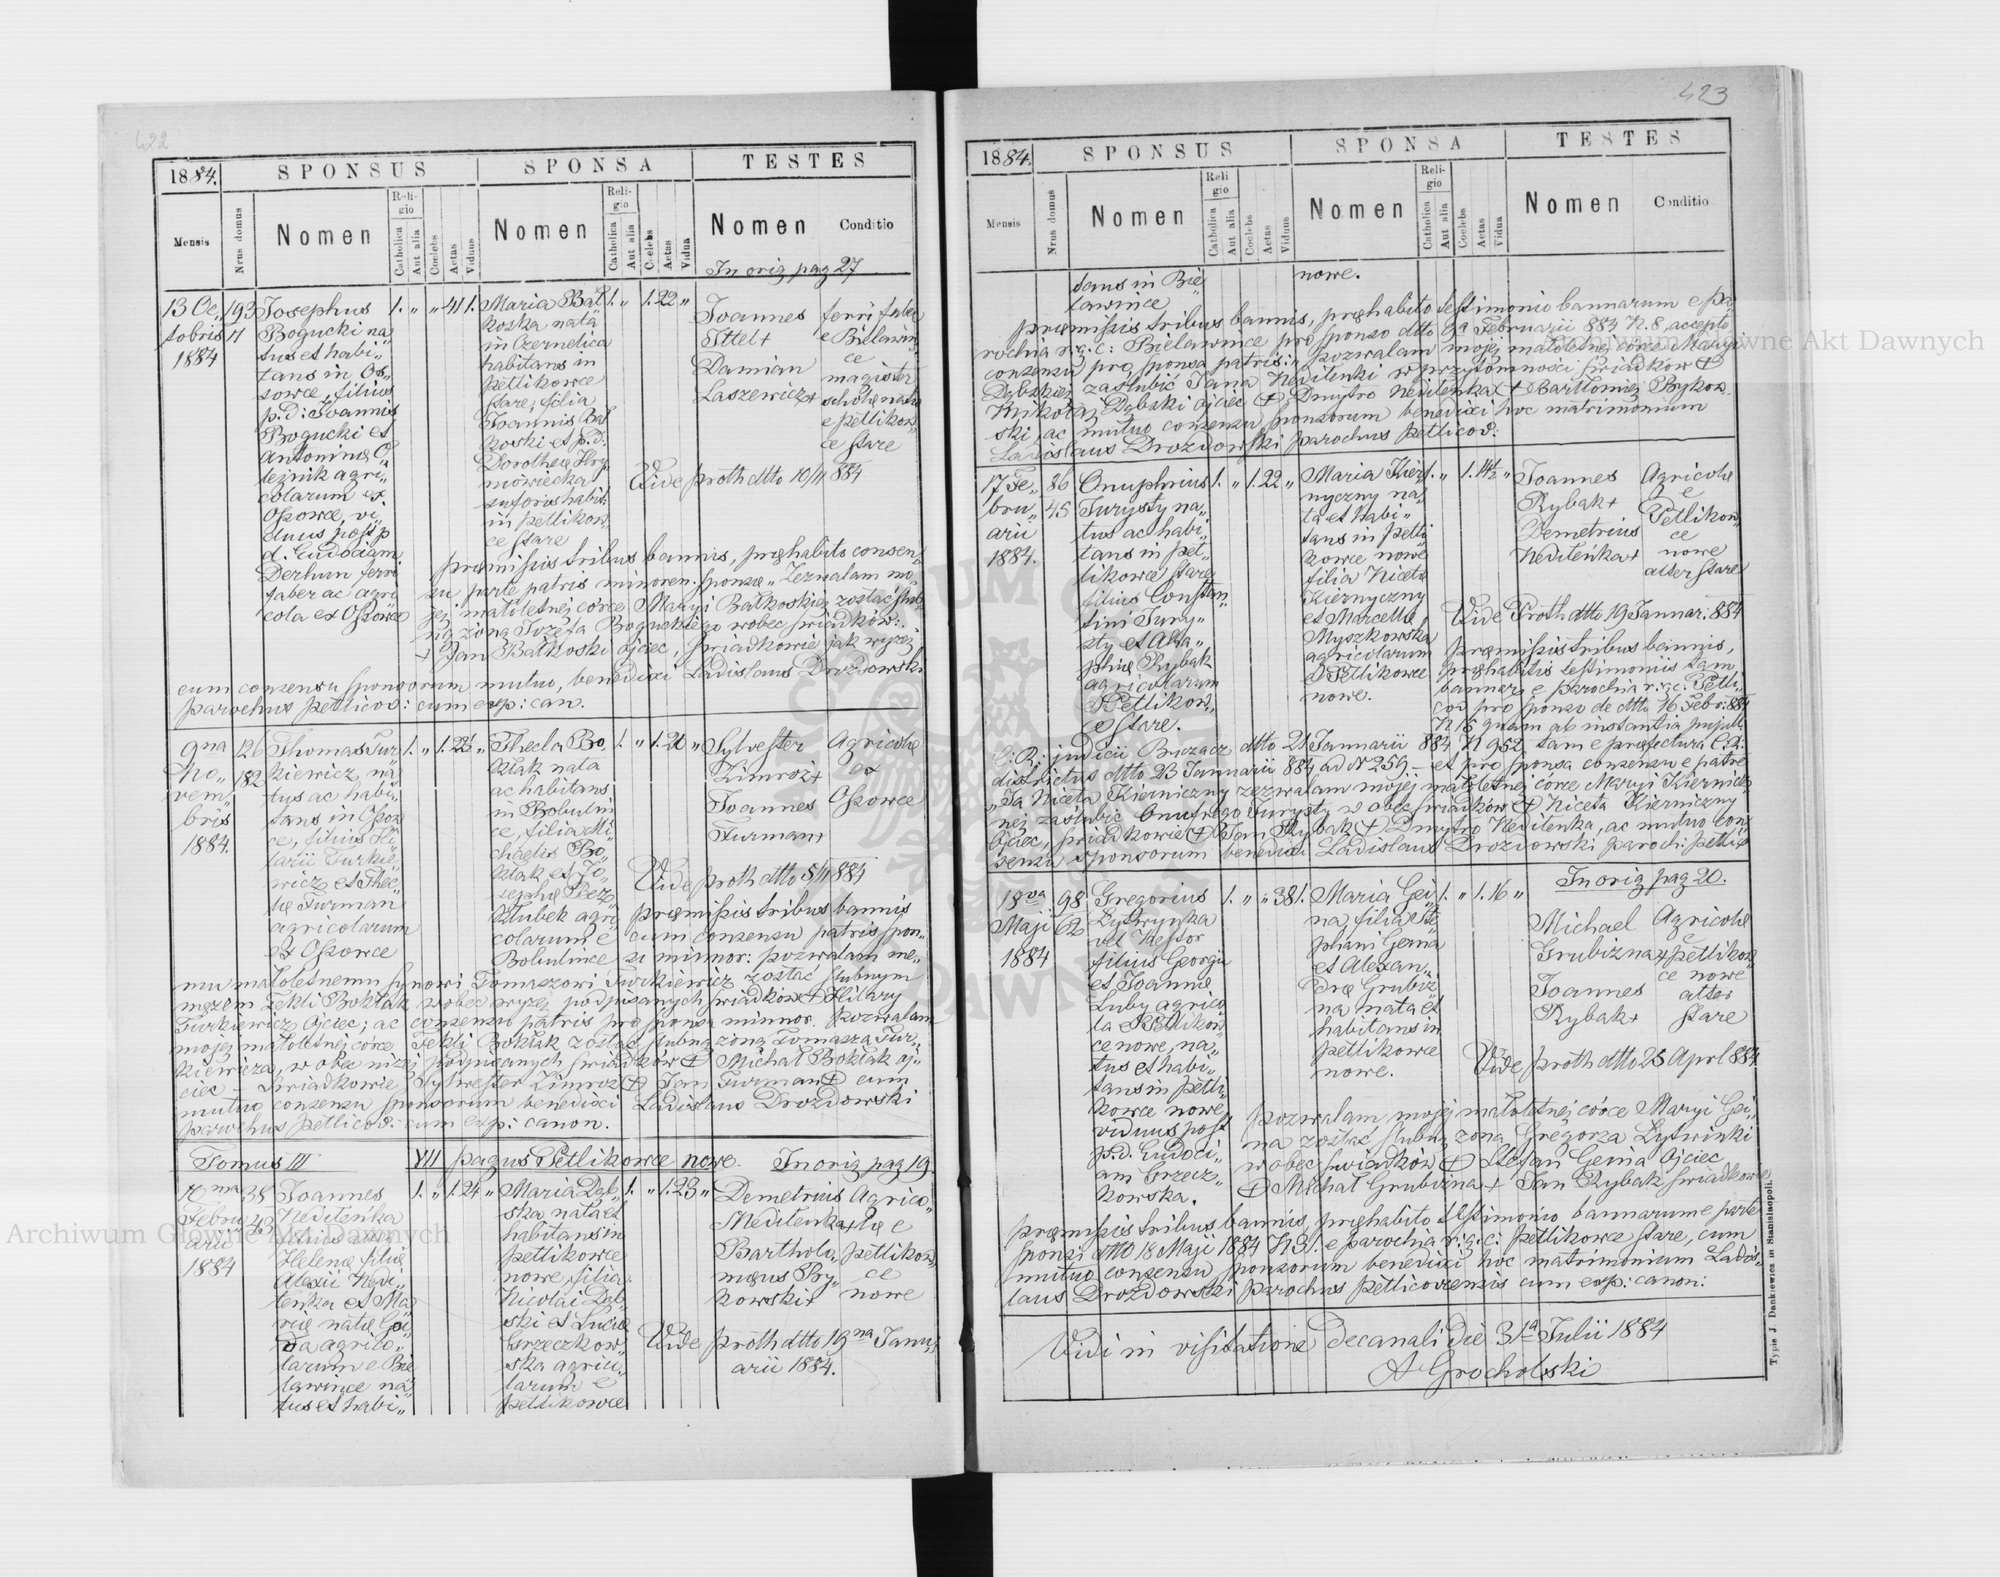 422
1884.
SPONSUS
SPONSA
TESTES
Mensis
Nrus domus
Nomen
Religio
Catholica
Aut alia
Coelebs
Aetas
Viduus
Nomen
Religio
Catholica
Aut alia
Coelebs
Aetas
Vidua
Nomen
Conditio
In orig pag 27
13 Oc„
tobris
1884
193
11
Josephus
Bogucki na„
tus et habi„
tans in Os„
sowce, filius
p.d: Joannis
Bogucki et
Antoninę O„
leźnik agri„
colarum ex
Ossowce, vi„
duus post p
d. Eudociam
Derhun ferri
faber ac agri
cola ex Ossowce
1. „ „ 41 1.
Maria Bał
koska nata
in Czernelica
habitans in
Petlikowce
stare, filia
Joannis Bał
koski et p.d.
Dorotheę Hry
niowiecka
sutoris habit:
in Petlikow„
ce stare
1. „ 1. 22 „
Joannes
Ittel +
Damian
Laszewicz +
ferri faber
e Bielawin„
ce
magister
scholę natus
e Petlikow„
ce stare
Vide proth dtto 10/11 884
pręmissis tribus bannis, pręhabito consen„
su parte patris minoren: sponsę „Zezwalam mo„
jej małoletniej córce Maryi Bałkoskiej zostać ślub„
ną żoną Józefa Boguckiego wobec świadków:
+ Jan Bałkoski ojciec, świadkowie jak wyżej
cum consensu sponsorum mutuo, benedixi Ladislaus Drozdowski
parochus Petlicov: cum exp: can.
9na
No„
vem„
bris
1884.
126
182
Thomas Tur
kiewicz na„
tus ac habi„
tans in Ossow
ce, filius Hi
larii Turkie„
wicz et Thec„
lę Furman
agricolarum
ex Ossowce
1. „ 1. 23½ „
Thecla Bo„
kłak nata
ac habitans
in Bobulin
ce, filia Mi
chaelis Bo„
kłak et Jo„
sephę Bez„
kłubek agri
colarum e
Bobulince
1. „ 1. 20 „
Sylvester
Zimroz +
Joannes
Furman +
Agricolę
ex
Ossowce
Vide proth dtto 5/11 884
pręmissis tribus bannis
cum consensu patris spon„
si minnor: pozwalam me„
mu małoletnemu synowi Tomaszowi Turkiewicz zostać ślubnym
mężem Tekli Bokłak wobec wyżej podpisanych świadków + Hilary
Turkiewicz Ojciec; ac consensu patris pro sponsa minnor. Pozwalam
mojej małoletniej córce Tekli Bokłak zostać ślubną żoną Tomasza Tur„
kiewicza, w obec niżej podpisanych świadków + Michał Bokłak oj„
ciec – Świadkowie Sylwester Zimroz + Jan Furman + cum
mutuo consensu sponsorum benedixi Ladislaus Drozdowski
parochus Petlicov: cum exp: canon.
Tomus III
VII pagus Petlikowce nowe. In orig pag 19
17ma
Febru
arii
1884
38
43
Joannes
Neditenka
filius
Helenę filię
Alexii Nedi„
tenka et Ma
rię natę
agrico„
larum e Bie
lawince na„
tus et habi„
1. „ 1. 24 „
Maria Dęb„
ska nata et
habitans in
Petlikowce
nowe, filia
Nicolai Dęb„
ski et Lucię
Grzeczkow„
ska agrico„
larum e
Petlikowce
1. „ 1. 23 „
Demetrius
Neditenka +
Bartholo„
męus Ry„
kowski +
Agrico„
lę e
Petlikow„
ce
nowe
Vide proth dtto 19na Janu„
arii 1884.
423
1884.
SPONSUS
SPONSA
TESTES
Mensis
Nrus domus
Nomen
Religio
Catholica
Aut alia
Coelebs
Aetas
Viduus
Nomen
Religio
Catholica
Aut alia
Coelebs
Aetas
Vidua
Nomen
Conditio
tans in Bie
lawince
nowe.
pręmissis tribus bannis, pręhabito testimonio bannarum e pa
rochia r.g.c: Bielawince pro sponso dtto 9a Februarii 884 N. 8, accepto
consensu pro sponsa patris: „pozwalam mojej małoletniej córce Maryi
Dębskiej zaślubić Jana Neditenki w przytomności świadków +
Mikołaj Dębski ojciec + Dmytro Neditenka + Bartłomiej Rykow
ski, ac mutuo consensu sponsorum benedixi hoc matrimonium
Ladislaus Drozdowski parochus Petlicov:
17 Fe„
bru„
arii
1884.
86
45
Onuphrius
Jurysty na„
tus ac habi„
tans in Pet„
likowce stare
filius Constan„
tini Jury„
sty et Aga„
phię Rybak
agricolarum
e Petlikow„
ce stare.
1. „ 1. 22 „
Maria Kier
nyczny na„
ta et habi„
tans in Petli
kowce nowe
filia Nicetę
Kiernyczny
et Marcellę
Myszkowska
agricolarum
e Petlikowce
nowe.
1. „ 1. 14½ „
Joannes
Rybak +
Demetrius
Neditenka +
Agricolę
e
Petlikow„
ce
nowe
alter stare
Vide Proth dtto 19 Januar: 884
Pręmissis tribus bannis,
pręhabitis testimoniis tam
bannar: e parochia r.g.c: Petli„
cov pro sponso de dtto 16 Febr: 884
N 15 quam ab instantia pupill:
C: R: judicii Buczacz dtto 21 Januarii 884 N 952, tam e pręfectura C.R:
districtus dtto 23 Januarii 884 ad N 259 – et pro sponsa consensu e patre
„Ja Niceta Kierniczny zezwalam mojej małoletniej córce Maryi Kiernicz
nej zaślubić Onufrego Jurysty, w obec świadków + Niceta Kierniczny
Ojciec, świadkowie + Jan Rybak + Dmytro Neditenka, ac mutuo con„
sensu sponsorum benedixi Ladislaus Drozdowski paroch: Petlic
18va
Maji
1884
98
62
Gregorius
Lytwynka
vel Nestor
filius Georgii
et Joannę
Luby agrico
la e Petlikow„
ce nowe, na„
tus et habi„
tans in Petli„
kowce nowe,
viduus post
p.d. Eudoci„
am Grzecz„
kowska.
1. „ „ 38 1.
Maria Gei„
na, filia Ste
phani Geina
et Alexan„
drę Grubiz
na nata et
habitans in
Petlikowce
nowe.
1. „ 1. 16 „
In orig pag 20.
Michael
Grubizna +
Joannes
Rybak +
Agricolę
e
Petlikow
ce nowe
alter
stare
Vide proth dtto 25 Aprl 884
Pozwalam mojej małoletniej córce Maryi Gei„
na zostać ślubną żoną Gregorza Lytwinki
w obec świadków + Stefan Geina Ojciec
+ Michał Grubizna + Jan Rybak świadkowie
pręmissis tribus bannis, pręhabito testimonio bannarum e parte
sponsi dtto 18 Maji 1884 N 31. e parochia r.g.c: Petlikowce stare, cum
mutuo consensu sponsorum benedixi hoc matrimonium Ladis„
laus Drozdowski parochus Petlicoviensis cum exp: canon:
Vidi in visitatione decanali die 31a Julii 1884
A Grocholski
Typis J. Dankiewicz in Stanislaopoli.
Archiwum Główne Akt Dawnych
Archiwum Główne Akt Dawnych